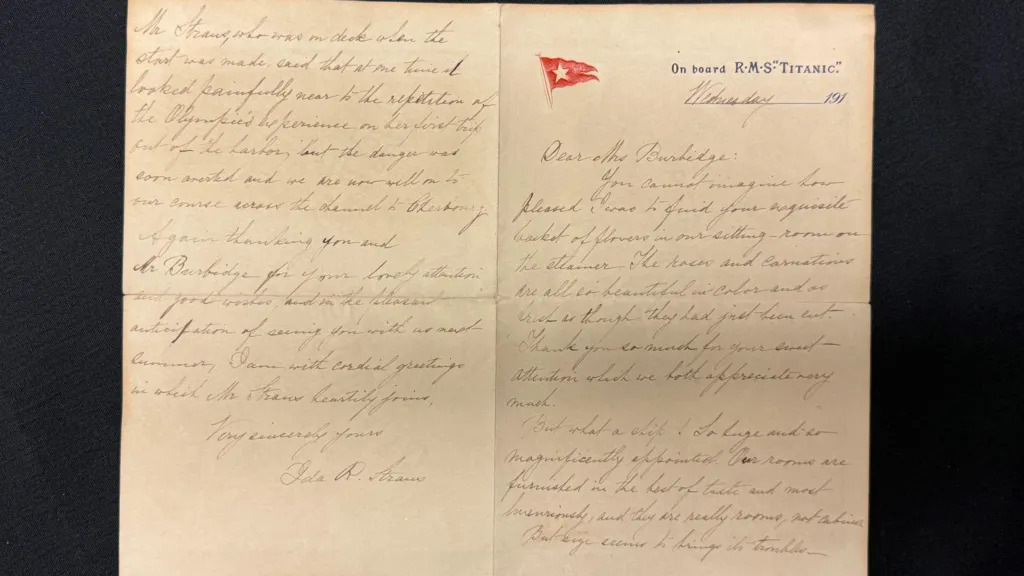 On board R·M·S·"TITANIC."
Wednesday 191
Dear Mrs Burbidge:
You cannot imagine how
pleased I was to find your exquisite
basket of flowers in our sitting-room on
the steamer. The roses and carnations
are all so beautiful in color and as
fresh as though they had just been cut.
Thank you so much for your sweet
attention which we both appreciate very
much.
But what a ship! So huge and so
magnificently appointed. Our rooms are
furnished in the best of taste and most
luxuriously, and they are really rooms, not cabins.
But size seems to bring its troubles—
Mr Straus, who was on deck when the
start was made, said that at one time it
looked painfully near to the repetition of
the Olympic's experience on her first trip
out of the harbor, but the danger was
soon averted and we are now well on to
our course across the channel to Cherbourg
Again thanking you and
Mr Burbidge for your lovely attention
and good wishes, and in the pleasant
anticipation of seeing you with us next
summer, I am with cordial greetings
in which Mr Straus heartily joins,
Very sincerely yours
Ida R. Straus